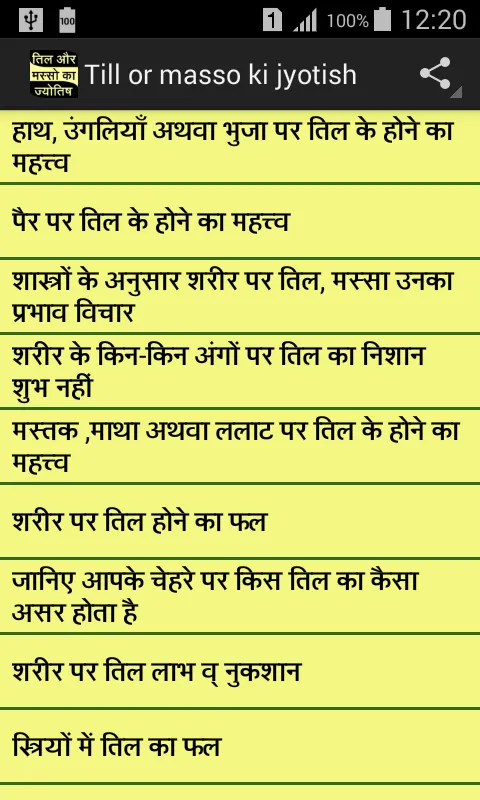 100
1
100%
12:20
तिल और
मस्सो का
ज्योतिष
Till or masso ki jyotish
हाथ, उंगलियाँ अथवा भुजा पर तिल के होने का
महत्त्व
पैर पर तिल के होने का महत्त्व
शास्त्रों के अनुसार शरीर पर तिल, मस्सा उनका
प्रभाव विचार
शरीर के किन-किन अंगों पर तिल का निशान
शुभ नहीं
मस्तक ,माथा अथवा ललाट पर तिल के होने का
महत्त्व
शरीर पर तिल होने का फल
जानिए आपके चेहरे पर किस तिल का कैसा
असर होता है
शरीर पर तिल लाभ व् नुकशान
स्त्रियों में तिल का फल